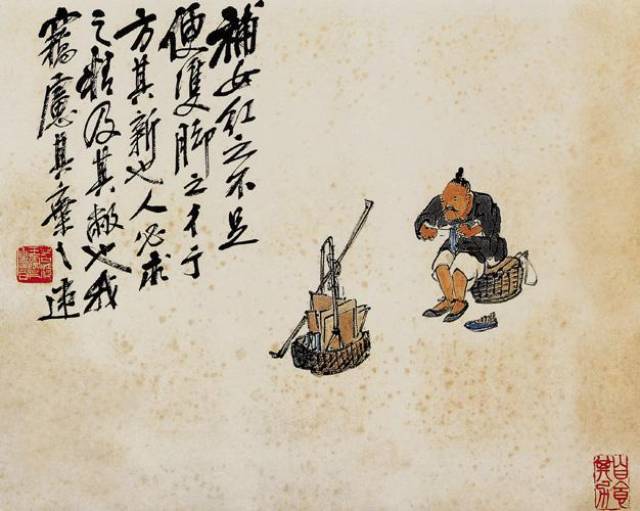 補女紅之不足
便雙脚之彳亍
方其新也人必求
之精及其敝也我
竊慮其棄之速